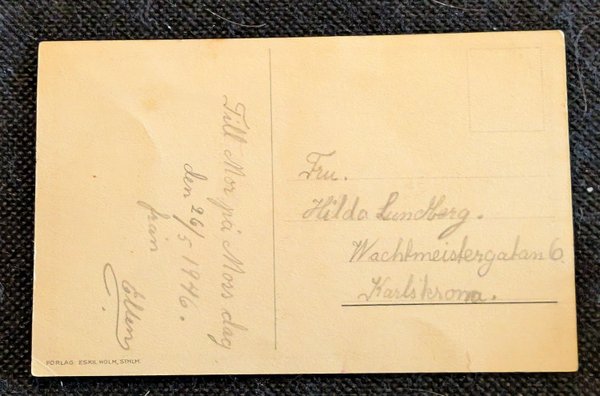 Till Mor på Mors dag
den 26/5 1946.
från
Ellen
Fru.
Hilda Lundberg.
Wachtmeistergatan 6
Karlskrona.
FÖRLAG: ESKIL HOLM, STHLM.